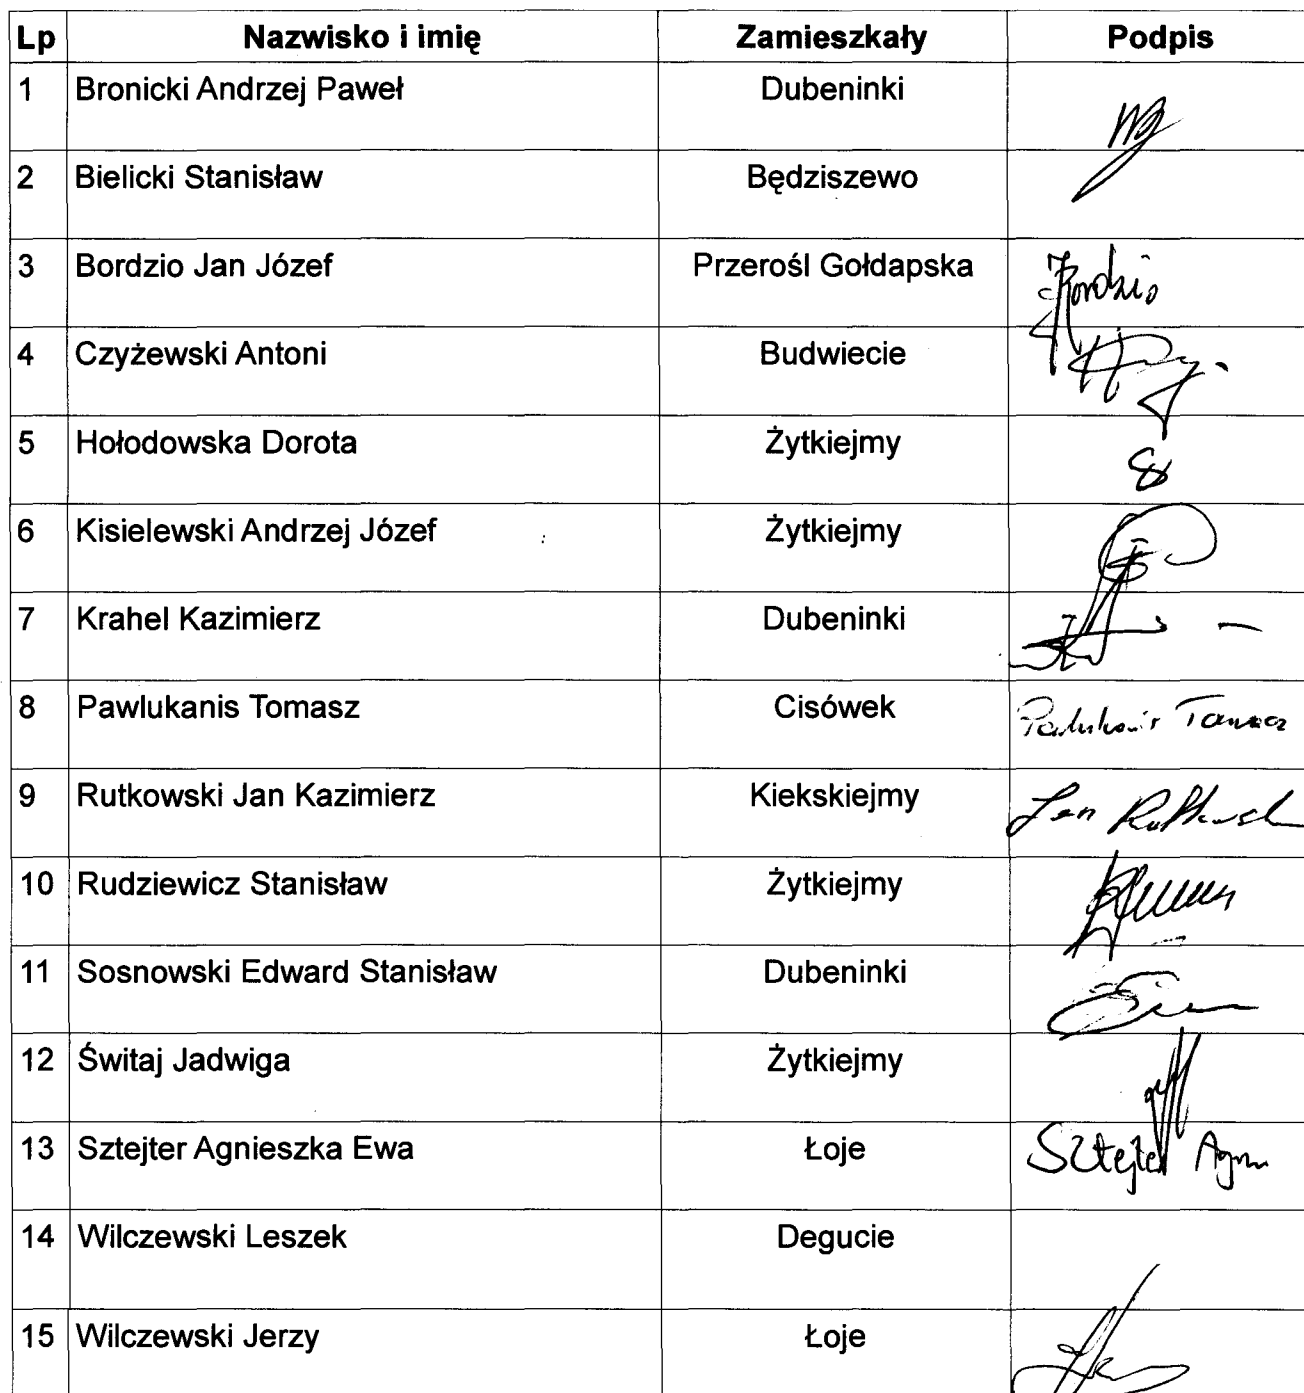 Lp Nazwisko i imię Zamieszkały Podpis
1 Bronicki Andrzej Paweł Dubeninki
2 Bielicki Stanisław Będziszewo
3 Bordzio Jan Józef Przerośl Gołdapska Bordzio
4 Czyżewski Antoni Budwiecie
5 Hołodowska Dorota Żytkiejmy
6 Kisielewski Andrzej Józef Żytkiejmy
7 Krahel Kazimierz Dubeninki
8 Pawlukanis Tomasz Cisówek Pawlukanis Tomasz
9 Rutkowski Jan Kazimierz Kiekskiejmy Jan Rutkowski
10 Rudziewicz Stanisław Żytkiejmy
11 Sosnowski Edward Stanisław Dubeninki
12 Świtaj Jadwiga Żytkiejmy
13 Sztejter Agnieszka Ewa Łoje Sztejter Agn
14 Wilczewski Leszek Degucie
15 Wilczewski Jerzy Łoje